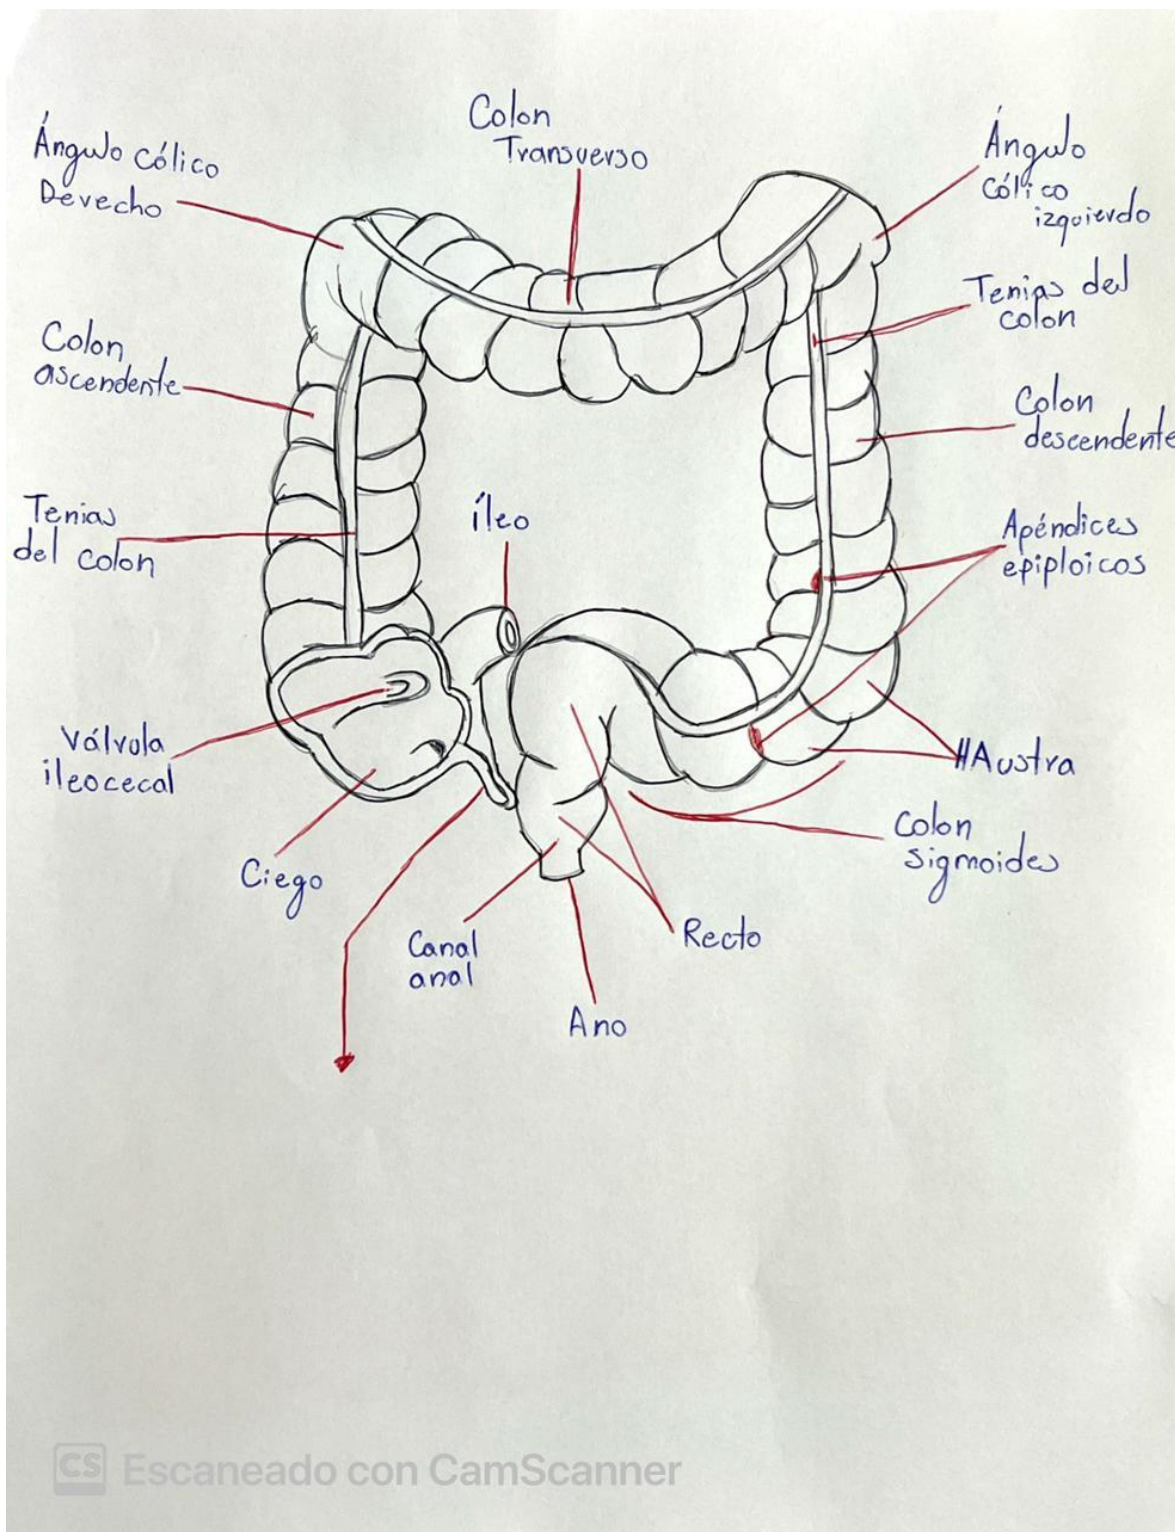 Colon
Transverso
Ángulo cólico
Derecho
Ángulo
cólico
izquierdo
Tenias del
colon
Colon
ascendente
Colon
descendente
Tenias
del colon
íleo
Apéndices
epiploicos
Válvula
ileocecal
HAustra
Colon
sigmoides
Ciego
Canal
anal
Recto
Ano
CS Escaneado con CamScanner